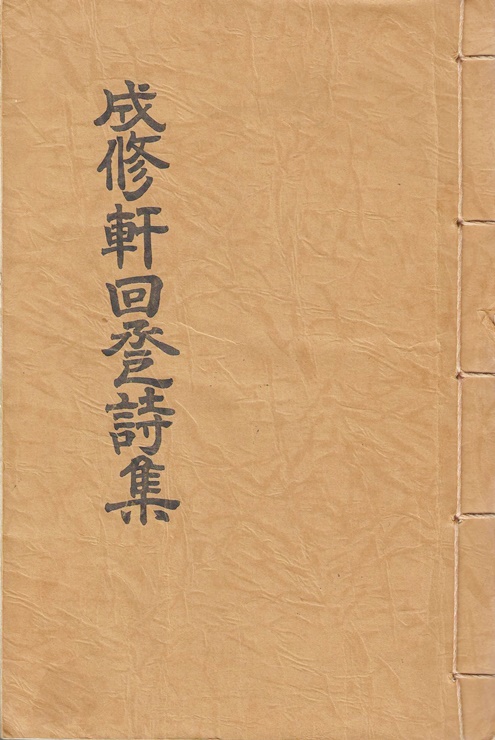 成修軒回巹詩集